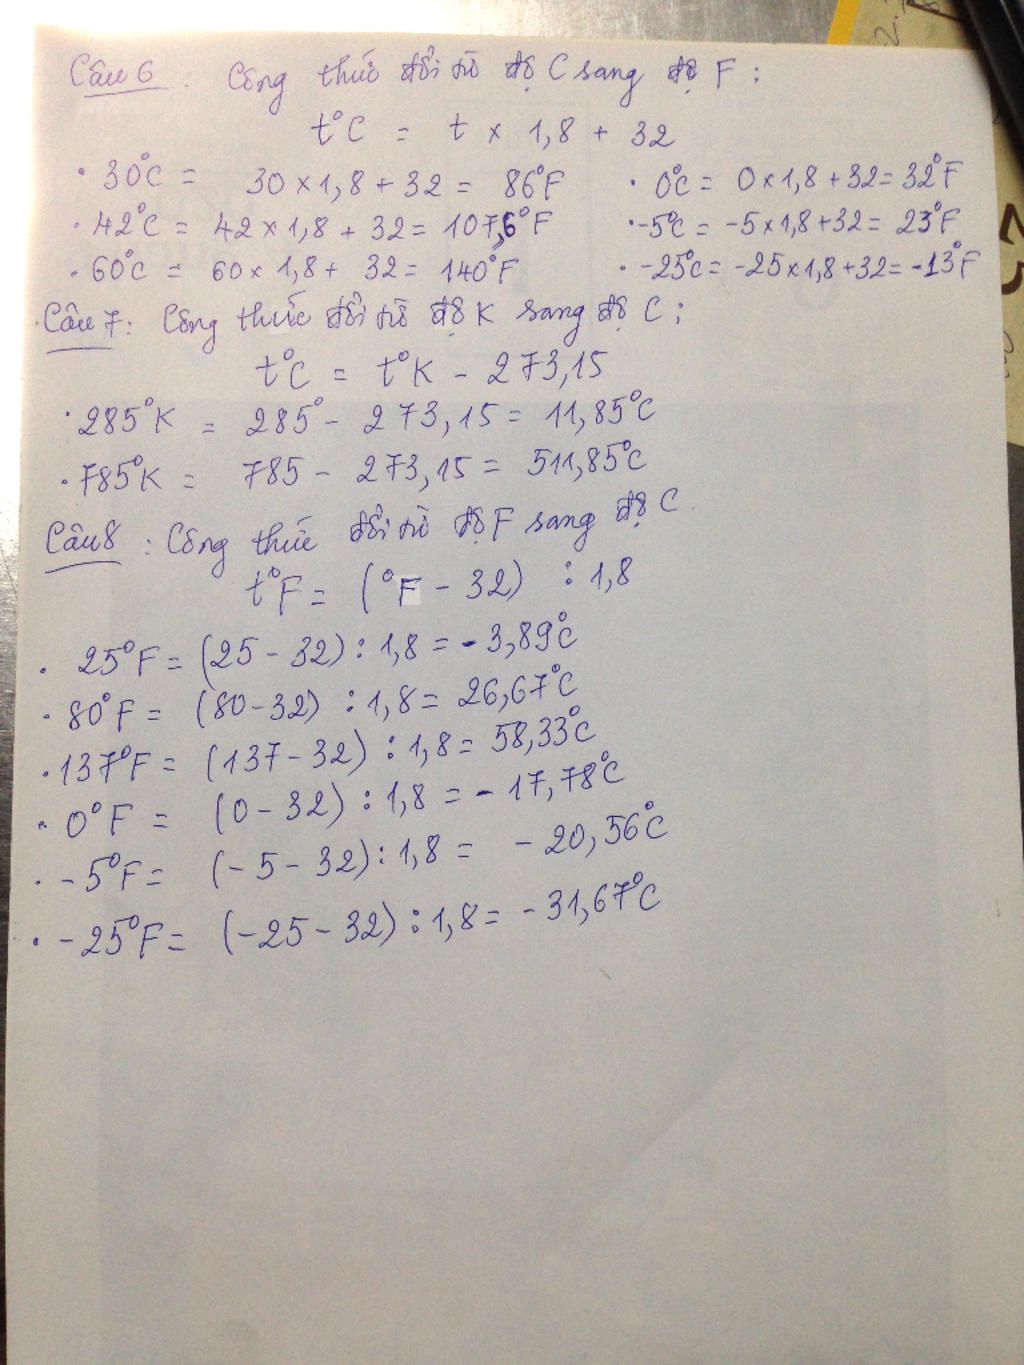 Câu 6 : Công thức đổi từ độ C sang độ F :
t°C = t × 1,8 + 32
• 30°C = 30 × 1,8 + 32 = 86°F • 0°C = 0 × 1,8 + 32 = 32°F
• 42°C = 42 × 1,8 + 32 = 107,6°F • -5°C = -5 × 1,8 + 32 = 23°F
• 60°C = 60 × 1,8 + 32 = 140°F • -25°C = -25 × 1,8 + 32 = -13°F
Câu 7 : Công thức đổi từ độ K sang độ C ;
t°C = t°K - 273,15
• 285°K = 285° - 273,15 = 11,85°C
• 785°K = 785 - 273,15 = 511,85°C
Câu 8 : Công thức đổi từ độ F sang độ C.
t°F = (°F - 32) : 1,8
• 25°F = (25 - 32) : 1,8 = -3,89°C
• 80°F = (80 - 32) : 1,8 = 26,67°C
• 137°F = (137 - 32) : 1,8 = 58,33°C
• 0°F = (0 - 32) : 1,8 = -17,78°C
• -5°F = (-5 - 32) : 1,8 = -20,56°C
• -25°F = (-25 - 32) : 1,8 = -31,67°C
25